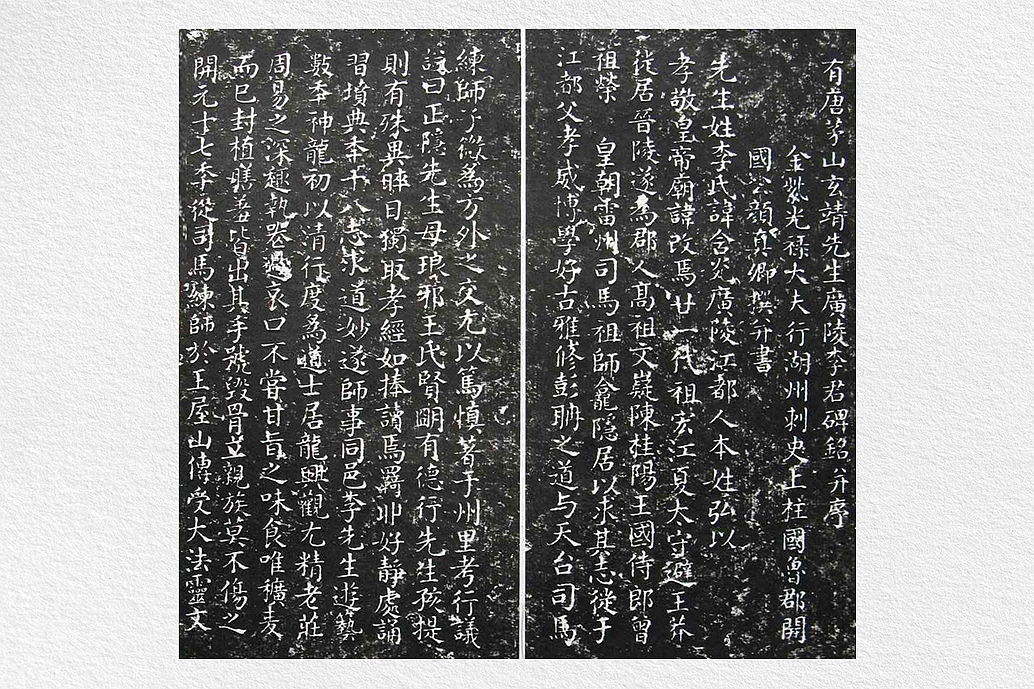 有唐茅山玄靖先生廣陵李君碑銘并序
金紫光祿大夫行湖州刺史上柱國魯郡開
國公顏真卿撰并書
先生姓李氏諱含光廣陵江都人本姓弘以
孝敬皇帝廟諱改焉廿一代祖宏江夏太守避王莽
徙居晉陵遂為郡人高祖文嶷陳桂陽王國侍郎曾
祖榮 皇朝雷州司馬祖師龕隱居以求其志徙于
江都父孝威博學好古雅修彭聃之道与天台司馬
練師子微為方外之交尤以篤慎著于州里考行議
諡曰正隱先生母琅邪王氏賢明有德行先生孩提
則有殊異晬日獨取孝經如捧讀焉羇丱好靜處誦
習墳典年十八志求道妙遂師事同邑李先生遊藝
數年神龍初以清行度為道士居龍興觀尤精老莊
周易之深趣執喪過哀口不嘗甘旨之味食唯穬麦
而已封植膳羞皆出其手號毀骨立親族莫不傷之
開元十七年從司馬練師於王屋山傳受大法靈文